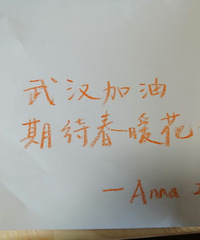 武汉加油
期待春暖花
—Anna